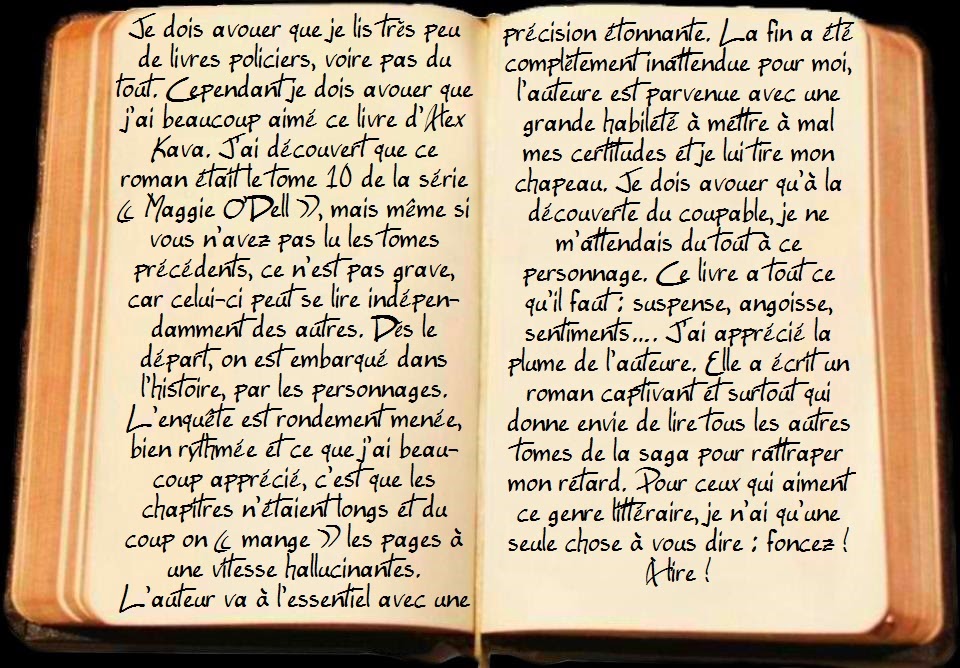 Je dois avouer que je lis très peu
de livres policiers, voire pas du
tout. Cependant je dois avouer que
j'ai beaucoup aimé ce livre d'Alex
Kava. J'ai découvert que ce
roman était le tome 10 de la série
« Maggie O'Dell », mais même si
vous n'avez pas lu les tomes
précédents, ce n'est pas grave,
car celui-ci peut se lire indépen-
damment des autres. Dès le
départ, on est embarqué dans
l'histoire, par les personnages.
L'enquête est rondement menée,
bien rythmée et ce que j'ai beau-
coup apprécié, c'est que les
chapitres n'étaient longs et du
coup on « mange » les pages à
une vitesse hallucinantes.
L'auteur va à l'essentiel avec une
précision étonnante. La fin a été
complètement inattendue pour moi,
l'auteure est parvenue avec une
grande habileté à mettre à mal
mes certitudes et je lui tire mon
chapeau. Je dois avouer qu'à la
découverte du coupable, je ne
m'attendais du tout à ce
personnage. Ce livre a tout ce
qu'il faut : suspense, angoisse,
sentiments.... J'ai apprécié la
plume de l'auteure. Elle a écrit un
roman captivant et surtout qui
donne envie de lire tous les autres
tomes de la saga pour rattraper
mon retard. Pour ceux qui aiment
ce genre littéraire, je n'ai qu'une
seule chose à vous dire : foncez !
À lire !